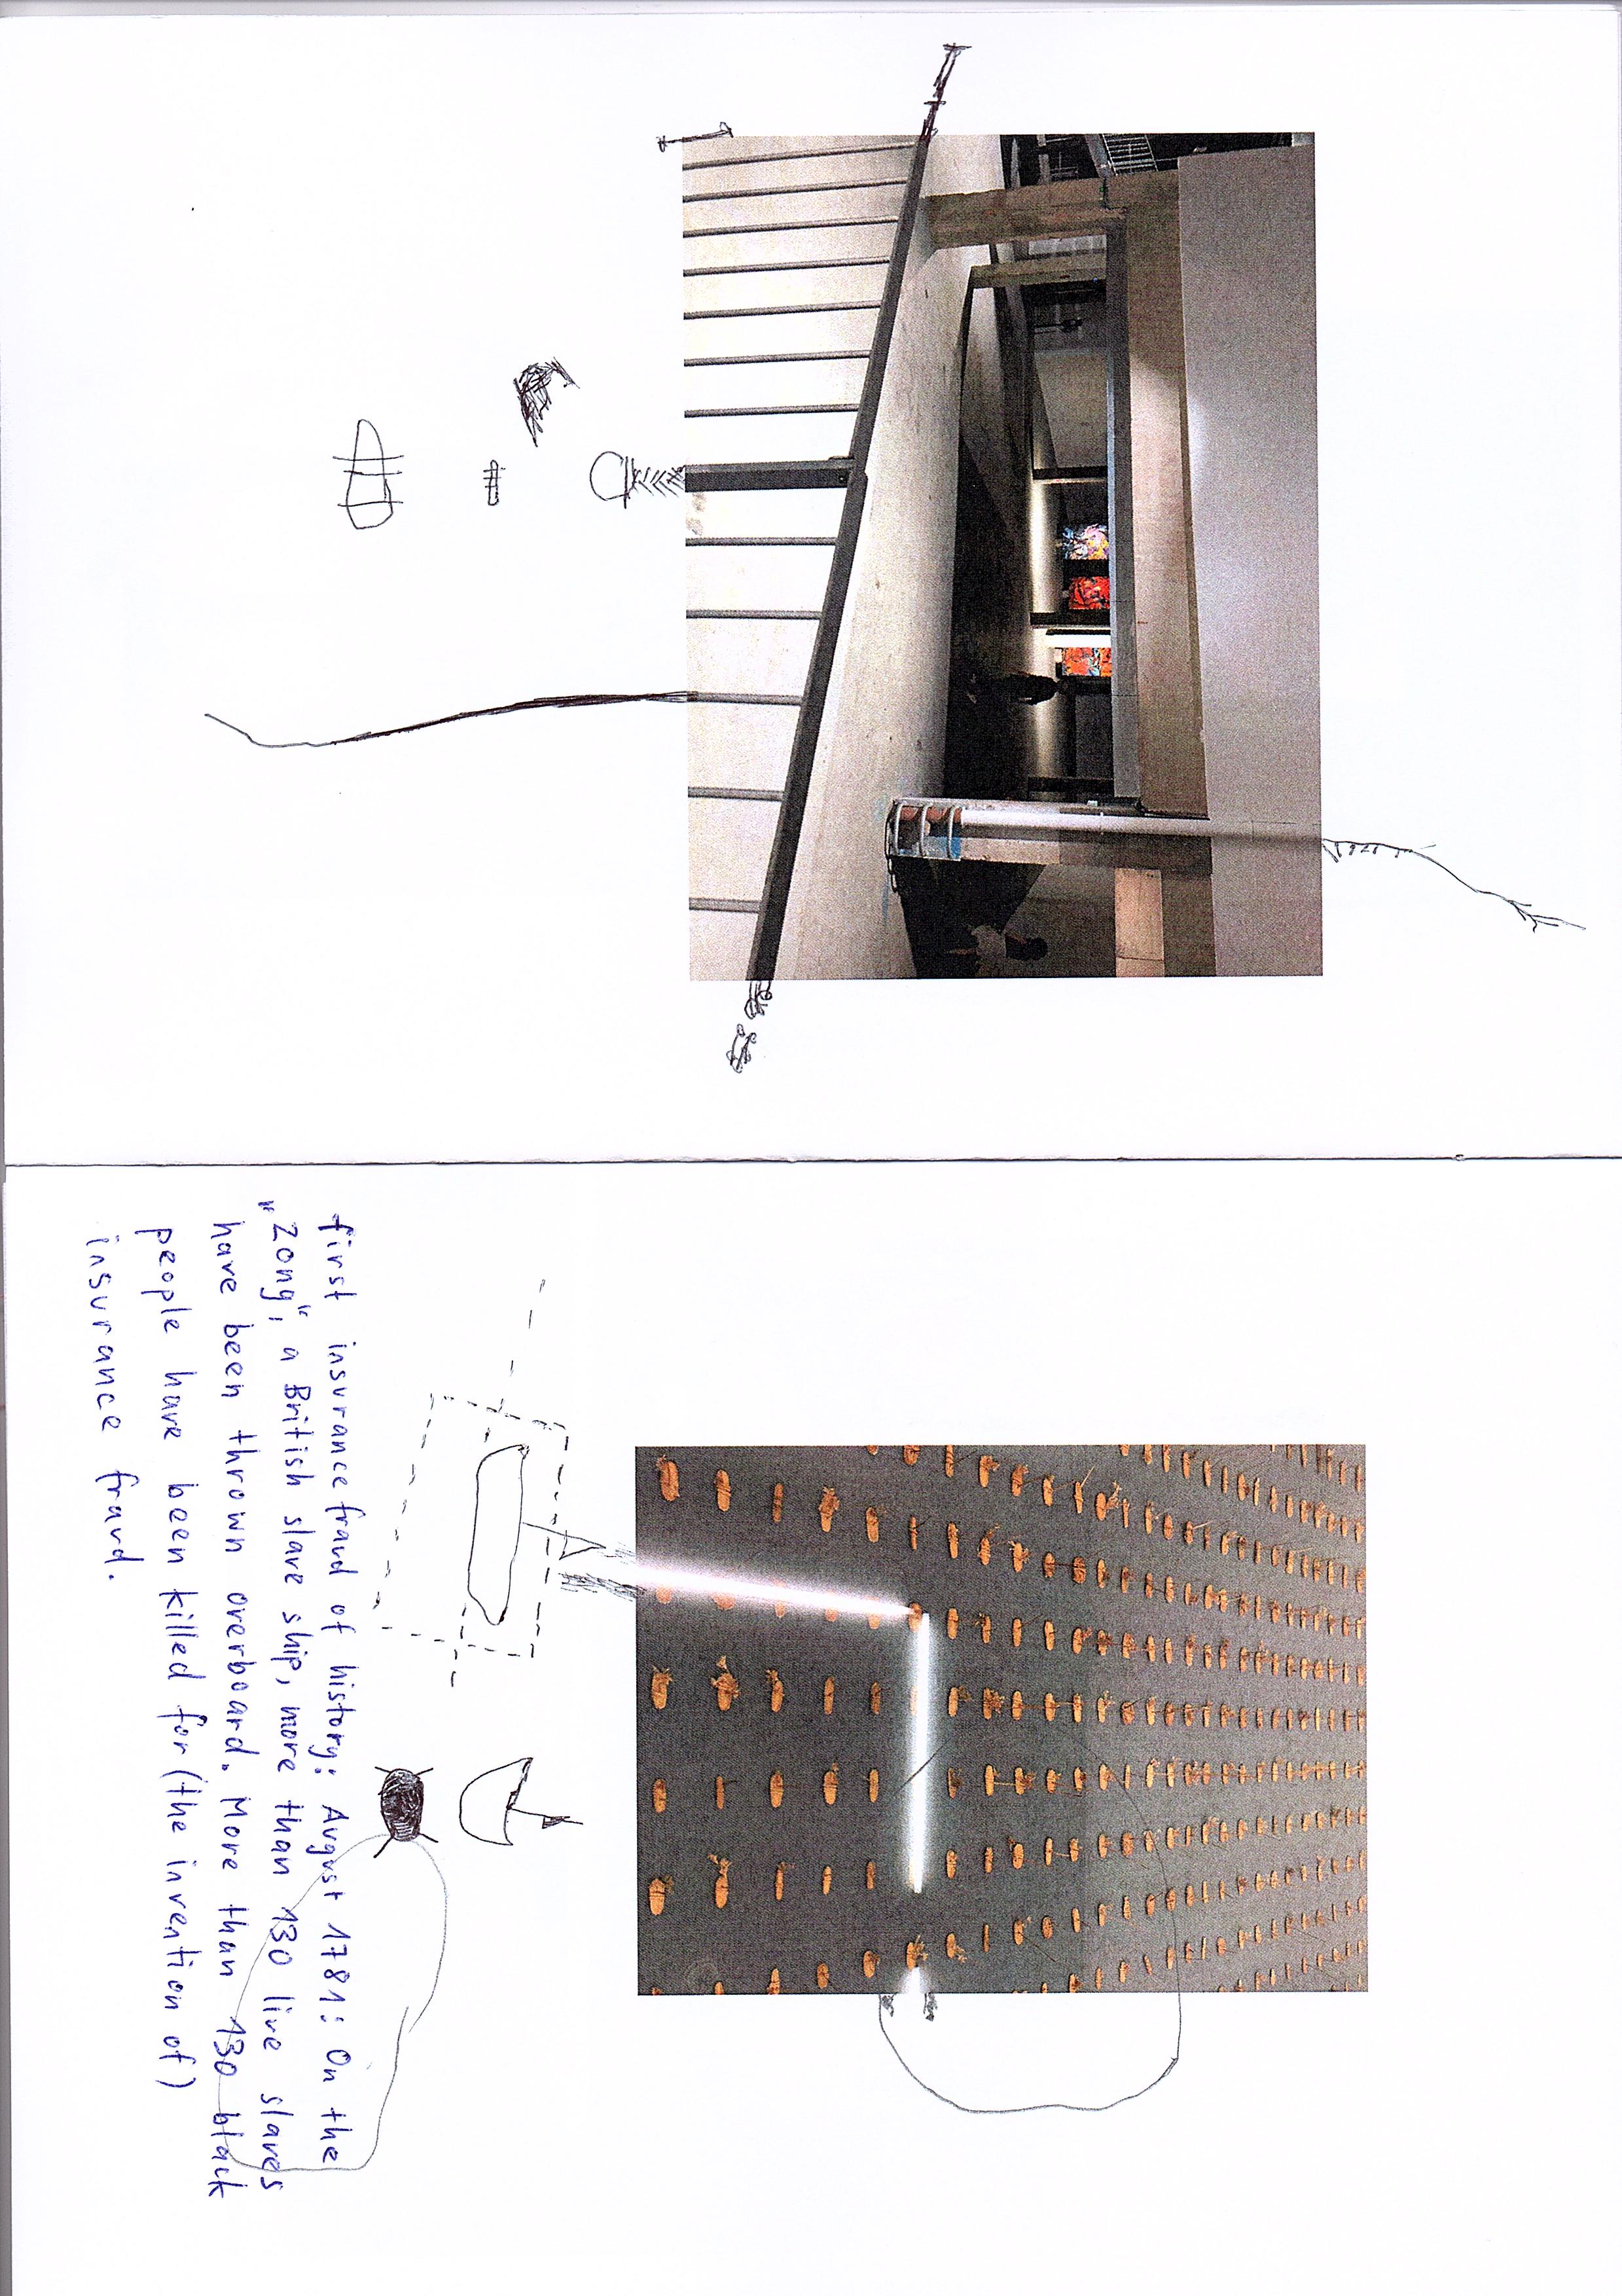 first insurance fraud of history: August 1781: On the
„Zong“, a British slave ship, more than 130 live slaves
have been thrown overboard. More than 130 black
people have been killed for (the invention of)
insurance fraud.